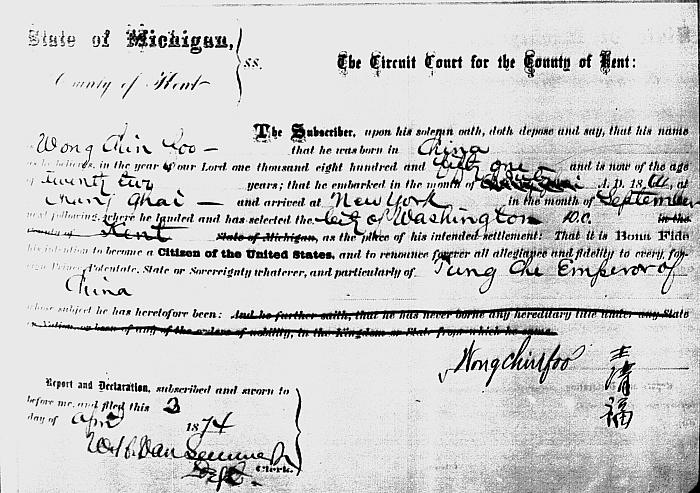 State of Michigan,
County of Kent
ss.
The Circuit Court for the County of Kent:
The Subscriber, upon his solemn oath, doth depose and say, that his name
is Wong Chin Foo — that he was born in China
as he believes, in the year of our Lord one thousand eight hundred and fifty one and is now of the age
of twenty two years; that he embarked in the month of A. D. 18 at
Shang Ghai — and arrived at New York in the month of September
next following, where he landed and has selected the City of Washington D.C. in the
County of Kent State of Michigan, as the place of his intended settlement: That it is Bona Fide
his intention to become a Citizen of the United States, and to renounce forever all allegiance and fidelity to every, for-
eign Prince, Potentate, State or Sovereignty whatever, and particularly of Tung Che Emperor of
China
whose subject he has heretofore been: And he further saith, that he has never borne any hereditary title under any State
or Nation, or been of any of the orders of nobility, in the Kingdom or State from which he came
Wong Chin Foo
王清福
Report and Declaration, subscribed and sworn to
before me, and filed this 3
day of April 1874
Clerk.